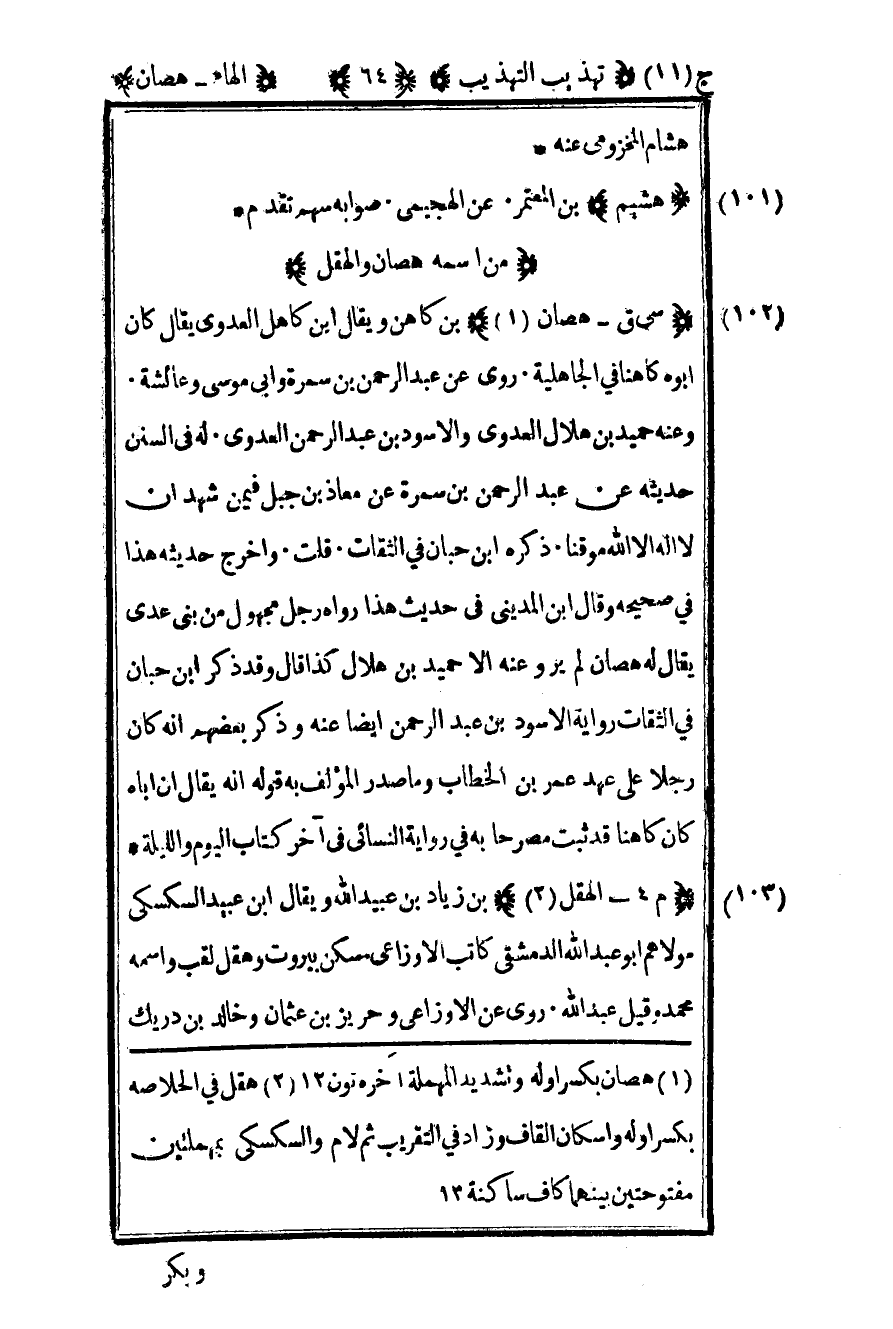 ج (١١) ﴿ تهذيب التهذيب ﴾ ﴿ ٦٤ ﴾ ﴿ الهاء ـ هصان ﴾
هشام المخزومى عنه *
(١٠١) ﴿ هشيم ﴾ بن المعتمر · عن الهجيمى · صوابه سهم تقدم *
﴿ من اسمه هصان والهقل ﴾
(١٠٢) ﴿ سى ق ـ هصان (١) ﴾ بن كاهن ويقال ابن كاهل العدوى يقال كان
ابوه كاهنا في الجاهلية · روى عن عبد الرحمن بن سمرة وابى موسى وعائشة ·
وعنه حميد بن هلال العدوى والاسود بن عبد الرحمن العدوى · له فى السنن
حديثه عن عبد الرحمن بن سمرة عن معاذ بن جبل فيمن شهد ان
لا اله الا الله موقنا · ذكره ابن حبان في الثقات · قلت · واخرج حديثه هذا
في صحيحه وقال ابن المدينى فى حديث هذا رواه رجل مجهول من بنى عدى
يقال له هصان لم يرو عنه الا حميد بن هلال كذا قال وقد ذكر ابن حبان
في الثقات رواية الاسود بن عبد الرحمن ايضا عنه وذكر بعضهم انه كان
رجلا على عهد عمر بن الخطاب وماصدر المؤلف به قوله انه يقال ان اباه
كان كاهنا قد ثبت مصرحا به في رواية النسائى فى آخر كتاب اليوم والليلة *
(١٠٣) ﴿ م ٤ ـ الهقل (٢) ﴾ بن زياد بن عبيد الله ويقال ابن عبيد السكسكى
مولاهم ابو عبد الله الدمشقى كاتب الاوزاعى سكن بيروت وهقل لقب واسمه
محمد وقيل عبد الله · روى عن الاوزاعى وحريز بن عثمان وخالد بن دريك
(١) هصان بكسر اوله وتشديد المهملة آخره نون ١٢ (٢) هقل في الخلاصه
بكسر اوله واسكان القاف وزاد في التقريب ثم لام والسكسكى بمهملتين
مفتوحتين بينهما كاف ساكنة ١٣
وبكر